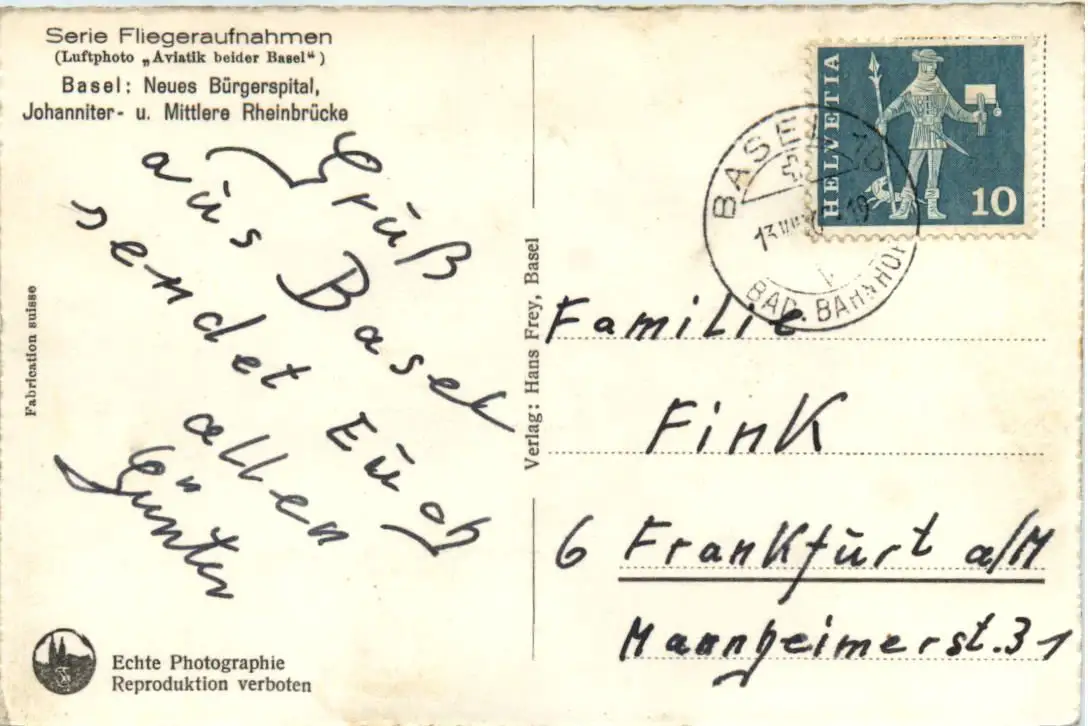 Serie Fliegeraufnahmen
(Luftphoto „Aviatik beider Basel“)
Basel: Neues Bürgerspital,
Johanniter- u. Mittlere Rheinbrücke
Gruß
aus Basel
sendet Euch
allen
Günter
Fabrication suisse
Echte Photographie
Reproduktion verboten
Verlag: Hans Frey, Basel
HELVETIA
10
BASEL
BAD. BAHNHOF
Familie
Fink
6 Frankfurt a/M
Mannheimerst. 31